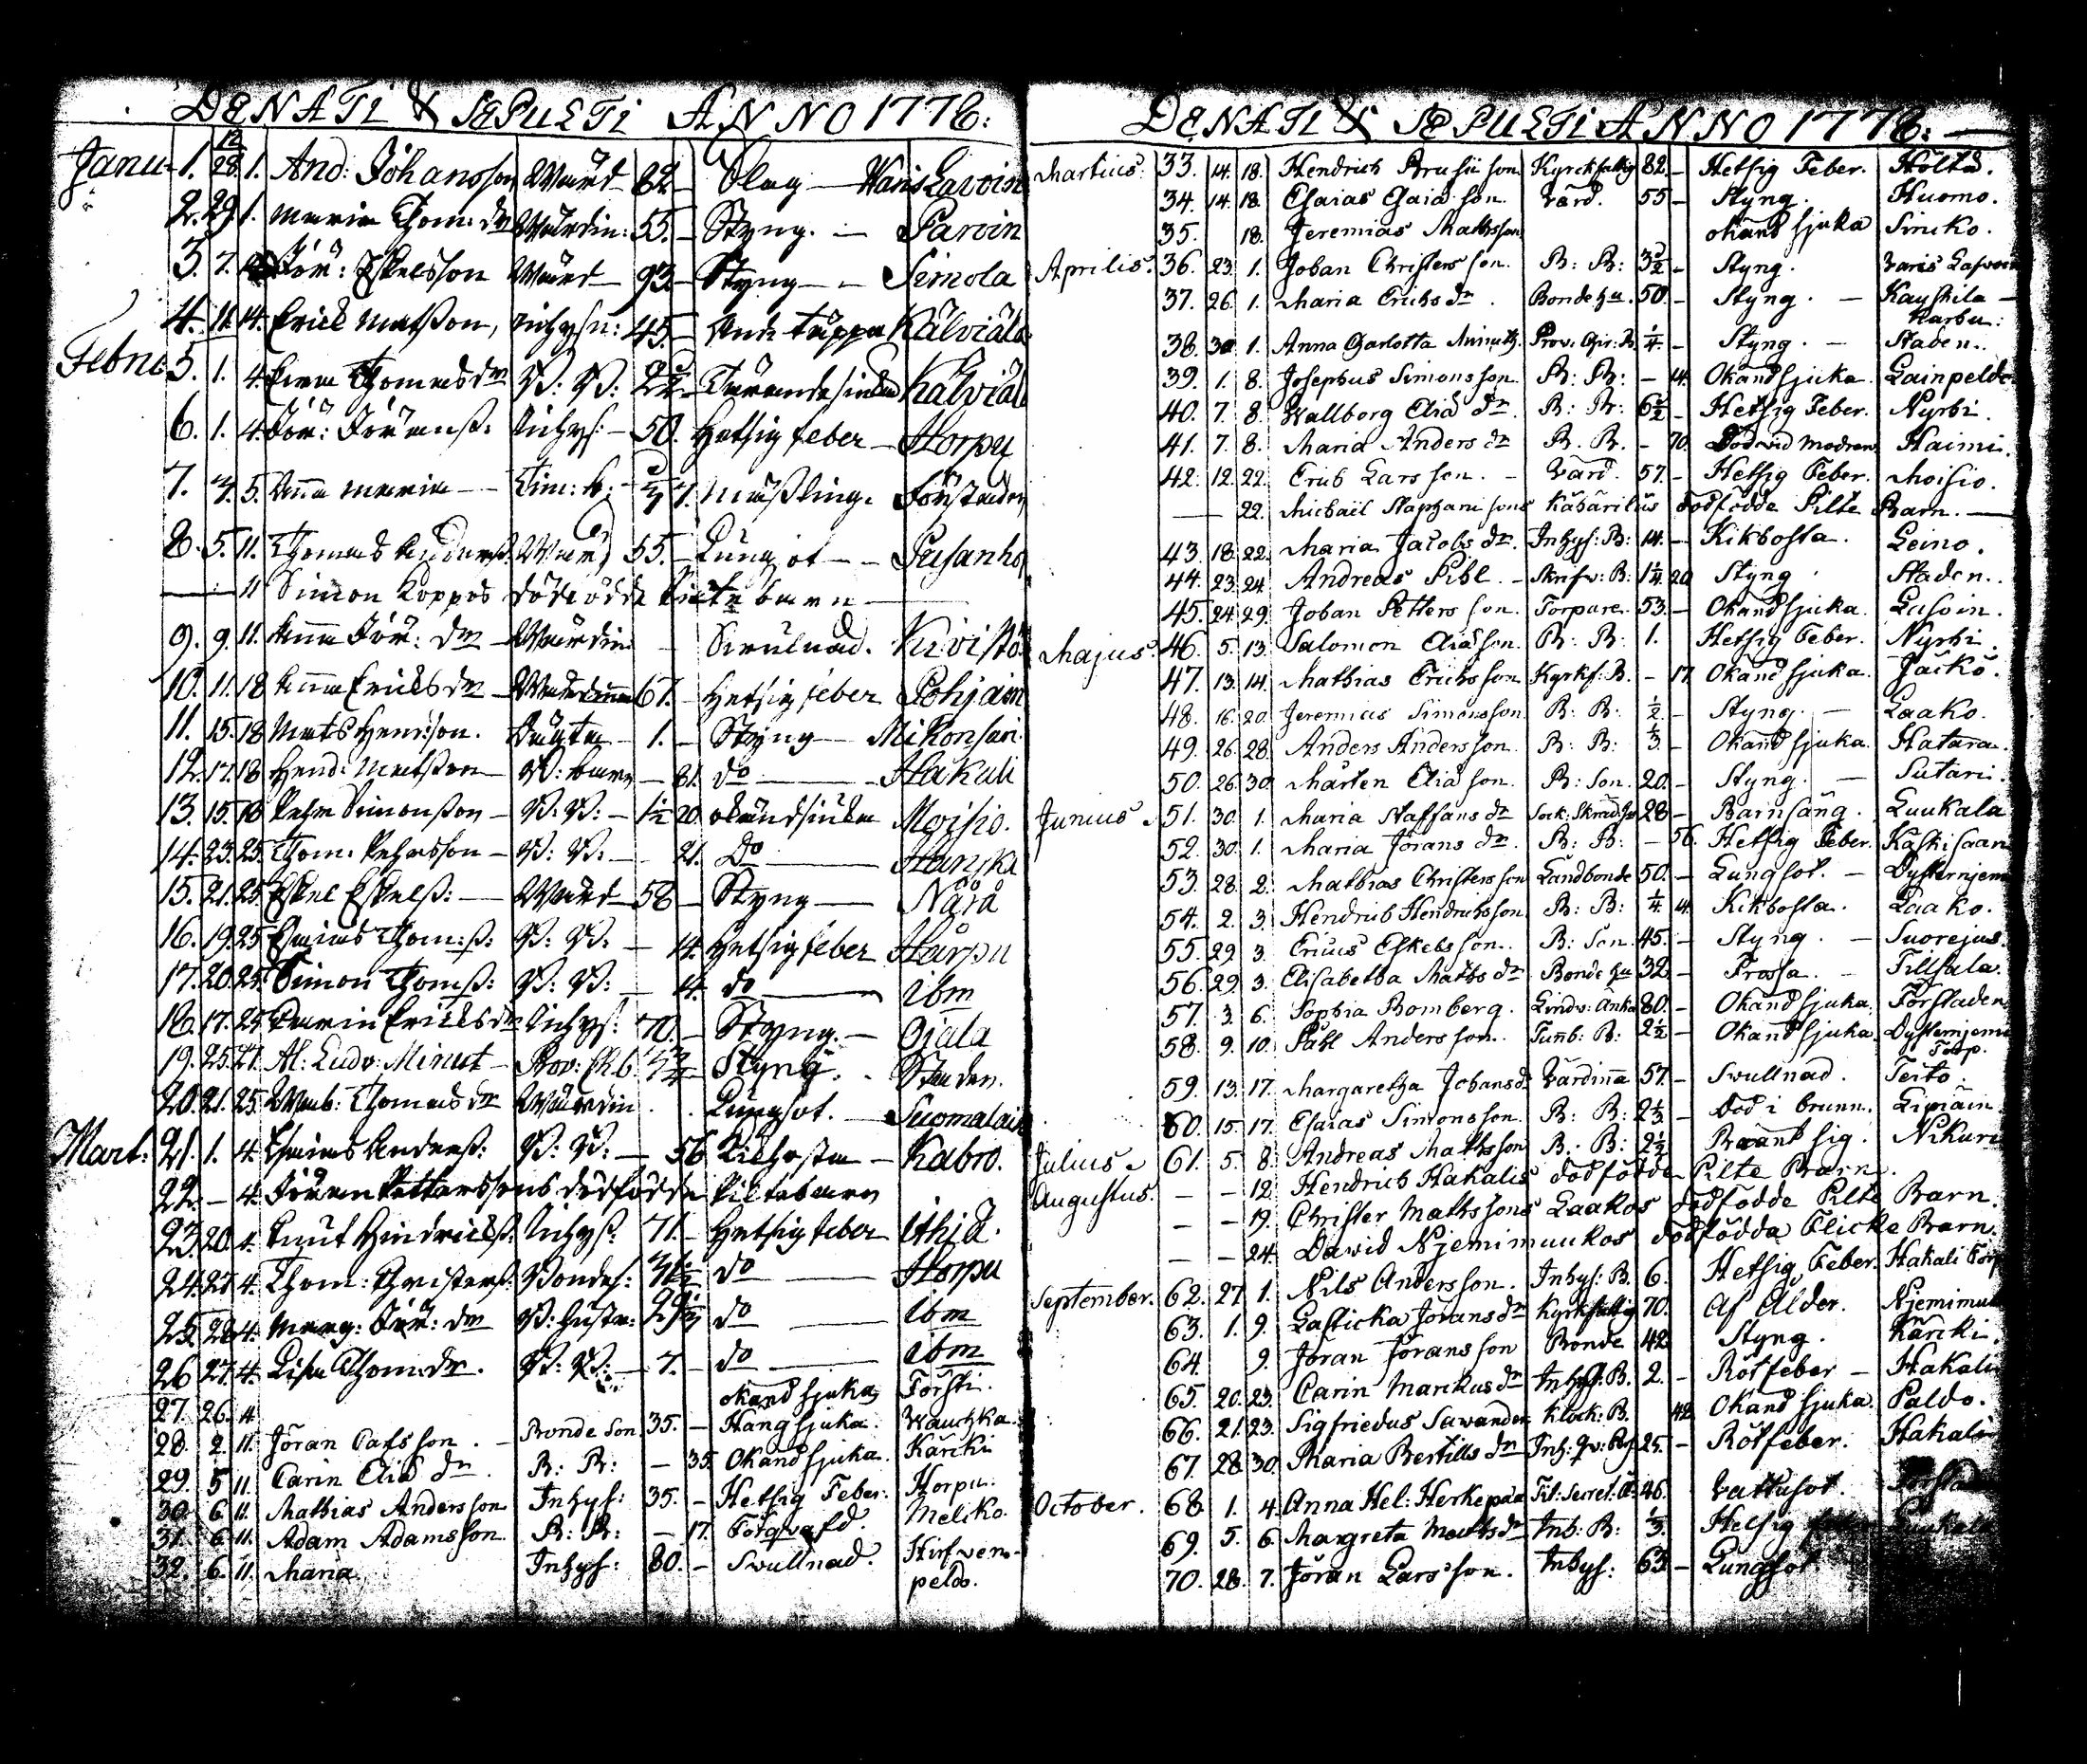 DENATI & SEPULTI ANNO 1778:
Janu: 1. 12/28. 1. And: Johansson Wärd 82 Olag Waris Lavoin
2. 29. 1. Maria Thom: dr Wärdin: 55. Styng. Parvin
3. 7. Jör: Eskelsson Wärd 93 Styng Simola
4. 11. 14. Erick Matsson, Inhysn: 45. Kälviälä
Febru: 5. 1. 4. Thomas dr B: B: Kälviälä
6. 1. 4. Jör: Jöranss: Inhys: 50. Hetsig feber Horpu
7. 5. Anna Maria Tim: b: Mässling. Förstaden
8. 5. 11. Thomas Anderss. Wärd 55. Lungsot Pusanho
11 Simon Koppos dödfödde Pilte barn
9. 9. 11. Anna Jör: dr Wärdin Swulnad. Kivistö
10. 11. 18 Anna Ericks dr Wärdinna 67. Hetsig feber Pohjain
11. 15. 18 Mats Henrsson. 1. Styng Mikonsari
12. 17. 18 Hend: Matsson B: barn 81. do Hakali
13. 15. 18 Pehr Simonsson B: B: 1½ 20 okändsiuka Moisio.
14. 23. 25. Thom: Pehrsson B: B: 21. Do Hanska
15. 21. 25. Eskel Eskelss: Wärd 58 Styng Nårå
16. 19. 25 Esaias Thom: ss: B: B: 14. Hetsig feber Hårpu
17. 20. 25. Simon Thomss: B: B: 4. do ibm
18. 17. 25 Karin Ericks dr Inhys: 70. Styng. Ojala
19. 25. 27. Al: Ludv: Minut Styng. Staden.
20. 21. 25. Walb: Thomas dr Wärdin Lungsot. Suomalain
Mart: 21. 1. 4. Esaias Anderss: B: B: 56 Kikhosta Kabro.
22. 4. Jöran Petterssons dödfödde Piltebarn
23. 20. 4. Knut Hindrickss: Inhys: 71. Hetsig feber
24. 27 4. Thom: Christerss: Bondes: do Horpu
25 28 4. Marg: Jör: dr B: hustr: do ibm
26 27. 4. Lisa Thom: dr. B: B: 7. do ibm
27. 26. 4 okänd sjuka Forsti.
28. 2. 11. Jöran Pafsson. Bonde Son 35. Hångsjuka. Wautzka.
29. 5 11. Carin Eliæ dr. B: B: 35. Okänd sjuka. Karcki
30. 6. 11. Mathias Andersson Inhys: 35. Hetsig Feber. Horpu.
31. 6. 11. Adam Adamsson. B: B: 17. Torqwafd. Melcko.
32. 6. 11. Maria Inhys: 80. Swullnad. Hirfwen-
peldo.
DENATI & SEPULTI ANNO 1778:
Martius: 33. 14. 18. Hendrich son Kyrckfattig 82. Hetsig Feber. Hölta.
34. 14. 18. Esaias Esaiæ son. Värd. 55 Styng. Huomo.
35. 18. Jeremias Mathsson okänd sjuka Siricko.
Aprilis: 36. 23. 1. Johan Christersson. B: B: 3½ Styng. Varis Lasvoin
37. 26. 1. Maria Erichs dr. Bonde hu. 50. Styng. Kayskila
Karbu:
38. 30. 1. Anna Charlotta Minuth. Prov. Chir: B. ¼ Styng. Staden.
39. 1. 8. Josephus Simonsson. B: B: 14. Okänd sjuka. Lainpeldo
40. 7. 8. Wallborg Eliæ dr B: B: 6½ Hetsig Feber. Nyrhi.
41. 7. 8. Maria Anders dr B. B. 70. Död vid modren Haimi.
42. 12. 22. Erich Larsson. Värd. 57. Hetsig Feber. Moisio.
22. Michaël Staphanisons Kabärilus dödfödde Pilte Barn.
43. 18. 22. Maria Jacobs dr. Inhys: B: 14. Kikhosta. Leino.
44. 23. 24. Andreas Pihl. Skrifv: B: 1¼ 20 Styng Staden.
45. 24. 29. Johan Pettersson. Torpare. 53. Okänd sjuka. Lasoin.
Majus: 46. 5. 13. Salomon Eliæson. B: B: 1. Hetsig Feber. Nyrhi
47. 13. 14. Mathias Erichsson. Kyrkf: B. 17. Okänd sjuka. Jäckö.
48. 16. 20. Jeremias Simonsson B: B: ½ Styng. Laako.
49. 26. 28. Anders Andersson. B: B: ⅓ Okänd sjuka. Hatara.
50. 26. 30. Mårten Eliæ son. B: Son. 20. Styng. Sutari.
Junius 51. 30. 1. Maria Staffans dr Sock: Skräd. hu 28 Barnsäng. Luukala
52. 30. 1. Maria Jörans dr. B: B: 56. Hetsig Feber. Kaskisaari
53. 28. 2. Mathias Christersson Landbonde 50. Lungsot. Dysternjemi
54. 2. 3. Hendrich Hendrichsson B: B: ¼ 4. Kikhosta. Laako.
55. 29. 3. Ericus Eskelsson. B: Son. 45. Styng. Suorejus.
56. 29. 3. Elisabetha Maths dr Bonde hu 32. Frossa. Tillsala.
57. 3. 6. Sophia Bomberg. Lindv: änka 80. Okänd sjuka. Förstaden
58. 9. 10. Påhl Andersson. Tunb: B: 2½ Okänd sjuka. Dysternjemi
Torp.
59. 13. 17. Margaretha Johans dr Värdinna 57. Swullnad. Teito
60. 15. 17. Esaias Simonsson. B: B: 2⅓ Död i brunn. Lipiäin
Julius 61. 5. 8. Andreas Mathsson B: B: 2½ Brändt sig. Nikuri
12. Hendrich Hakalis dödfödde Pilte Barn.
Augustus. 19. Christer Mathssons Laakos dödfödde Pilte Barn.
24. David Njemimuukos dödfödda Flicke Barn.
September. 62. 27 1. Nils Andersson. Inhys: B. 6. Hetsig Feber. Hakali Torp
63. 1. 9. Lasticka Jörans dr Kyrkfattig 70. Af Ålder. Njemimu
64. 9. Jöran Jöransson Bonde 42 Styng. Karcki.
65. 20. 23. Carin Markus dr Inhys. B. 2. Rötfeber Hakali
66. 21. 23. Sigfriedus Sawander Klock: B. 42 Okänd sjuka. Paldo.
67. 28 30. Maria Bertills dr 25. Rötfeber. Hakali
October. 68 1. 4. Anna Hel: Herkepæa Tit: Secret: 46. Vattusot. Förstad
69. 5. 6. Margreta Maths dr Inh: B: ⅓ Hetsig feber Luukala
70. 28. 7. Jöran Larsson. Inhys: 63 Lungsot.